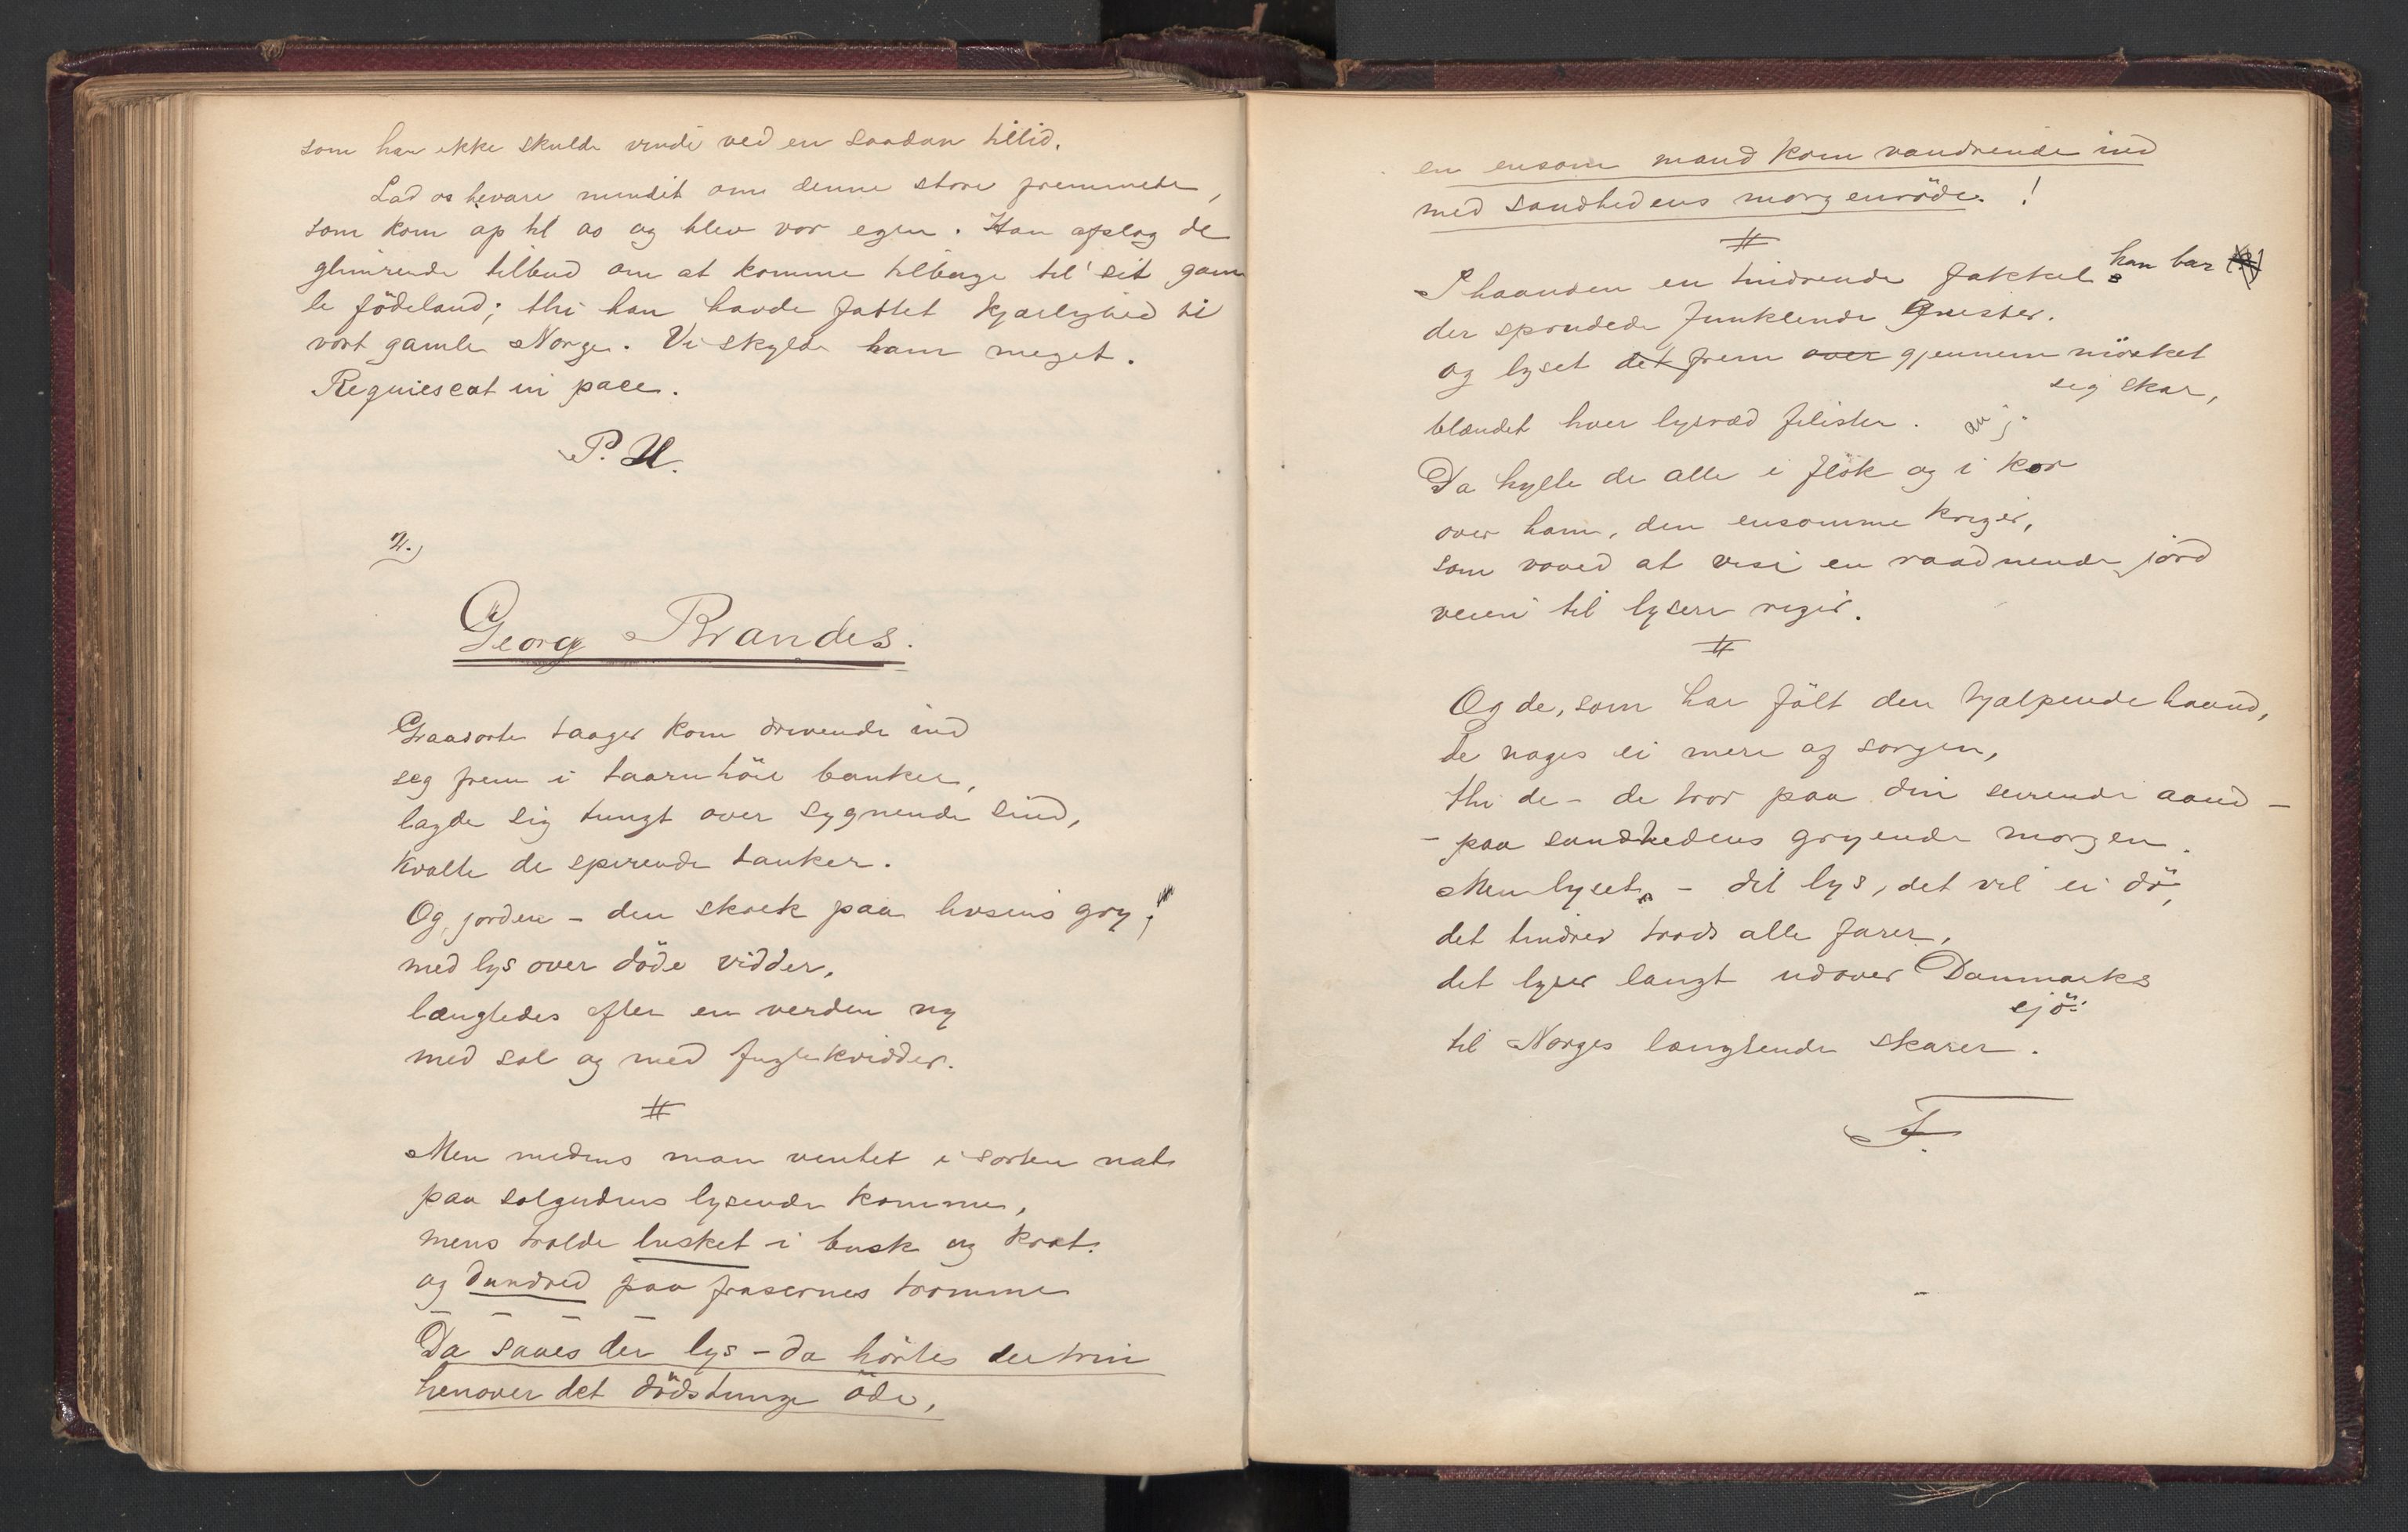 som han ikke skulde vinde ved en saadan tillid.
Lad os bevare mindet om denne store fremmede,
som kom op til os og blev vor egen. Han afslog de
glimrende tilbud om at komme tilbage til sit gam
le födeland; thi han havde fattet kjærlighed til
vort gamle Norge. Vi skylder ham meget.
Requiescat in pace.
P. U.
2.)
Georg Brandes.
Graasorte taager kom drivende ind
seg frem i taarnhöie banker,
lagde sig tungt over sygnende sind,
kvalte de spirende tanker.
Og jorden – den skrek paa livsens gry,
med lys over döde vidder,
længtedes efter en verden ny
med sol og med fuglekvidder.
#
Men medens man ventet i sorten nat
paa solgudens lysende komme,
mens trolde lusket i busk og krat
og dundred paa frasernes tromme
Da saaes der lys – da hörtes der trin
henover det dödstunge öde,
en ensom mand kom vandrende ind
med sandhedens morgenröde. !
#
I haanden en tindrende fakkel han bar
der sprudede funklende Gnister.
og lyset det frem over gjennem mörket
sig skar,
blændet hver lysræd filister.
Da hylte de alle i flok og i kor
over ham, den ensomme kriger,
som voved at vise en raadnende jord
veien til lysere riger.
#
Og de, som har fölt den hjælpende haand,
de nages ei mere af sorgen,
thi de – de tror paa din seirende aand –
– paa sandhedens gryende morgen.
Men lyset, – dit lys, det vil ei dö,
det tindrer trods alle farer,
det lyser langt udover Danmarks
sjö
til Norges længtende skarer.
F.